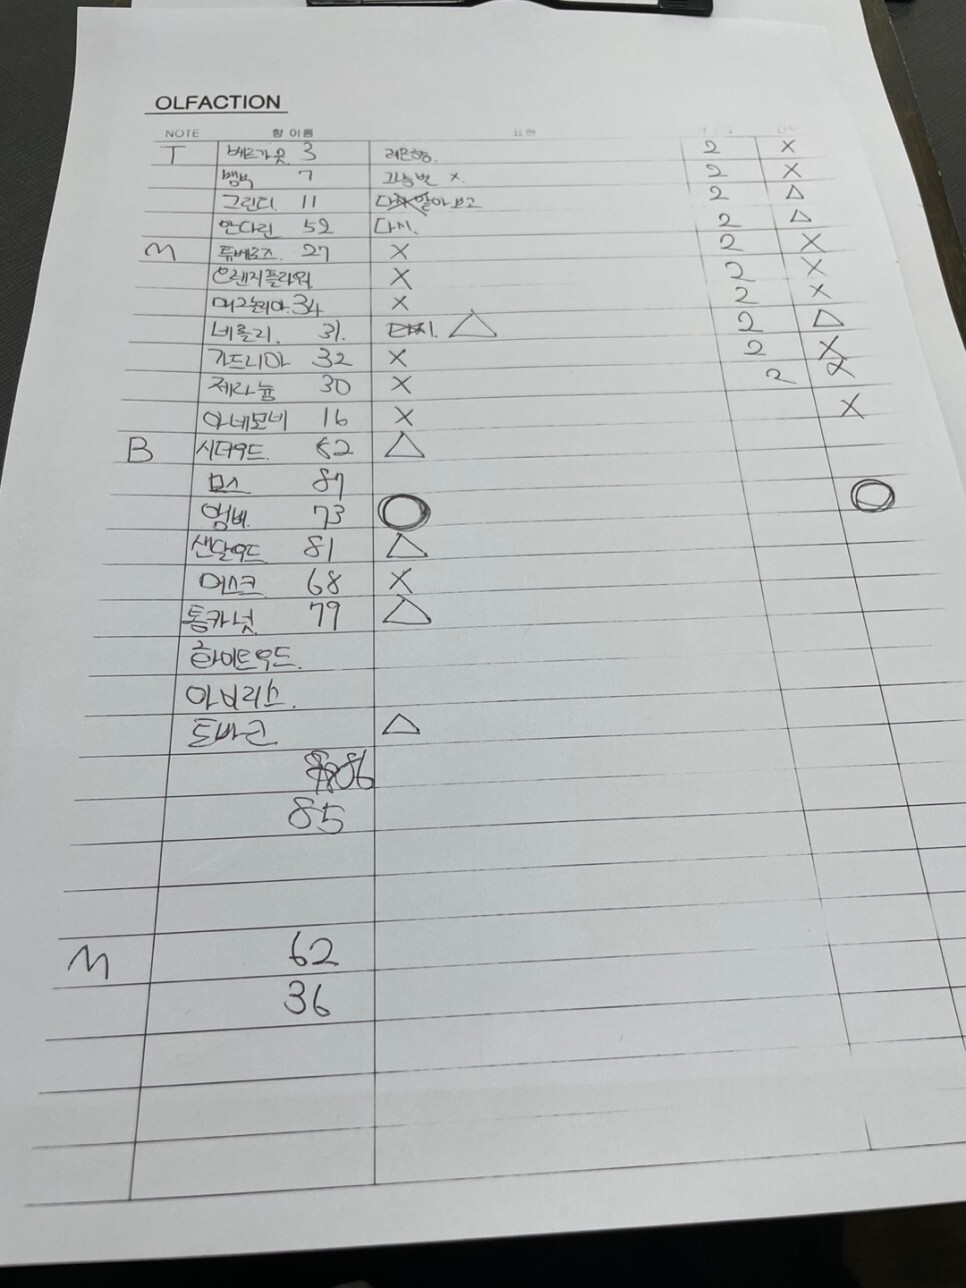 OLFACTION
NOTE 향 이름 표현
T 베르가못 3 레몬향. 2 X
뱀부 7 X. 2 X
그린티 11 알아보고 2 △
만다린 52 다시. 2 △
M 튜베로즈. 27 X 2 X
오렌지플라워 X 2 X
매그놀리아. 34 X 2 X
네롤리. 31. △ 2 △
가드니아 32 X 2 X
제라늄 30 X 2 X
아네모네 16 X X
B 시더우드. 62 △
모스 87
엠버. 73 ○ ○
샌달우드 81 △
머스크 68 X
통카넛 79 △
화이트우드.
아이리스.
토바코 △
86
85
M 62
36